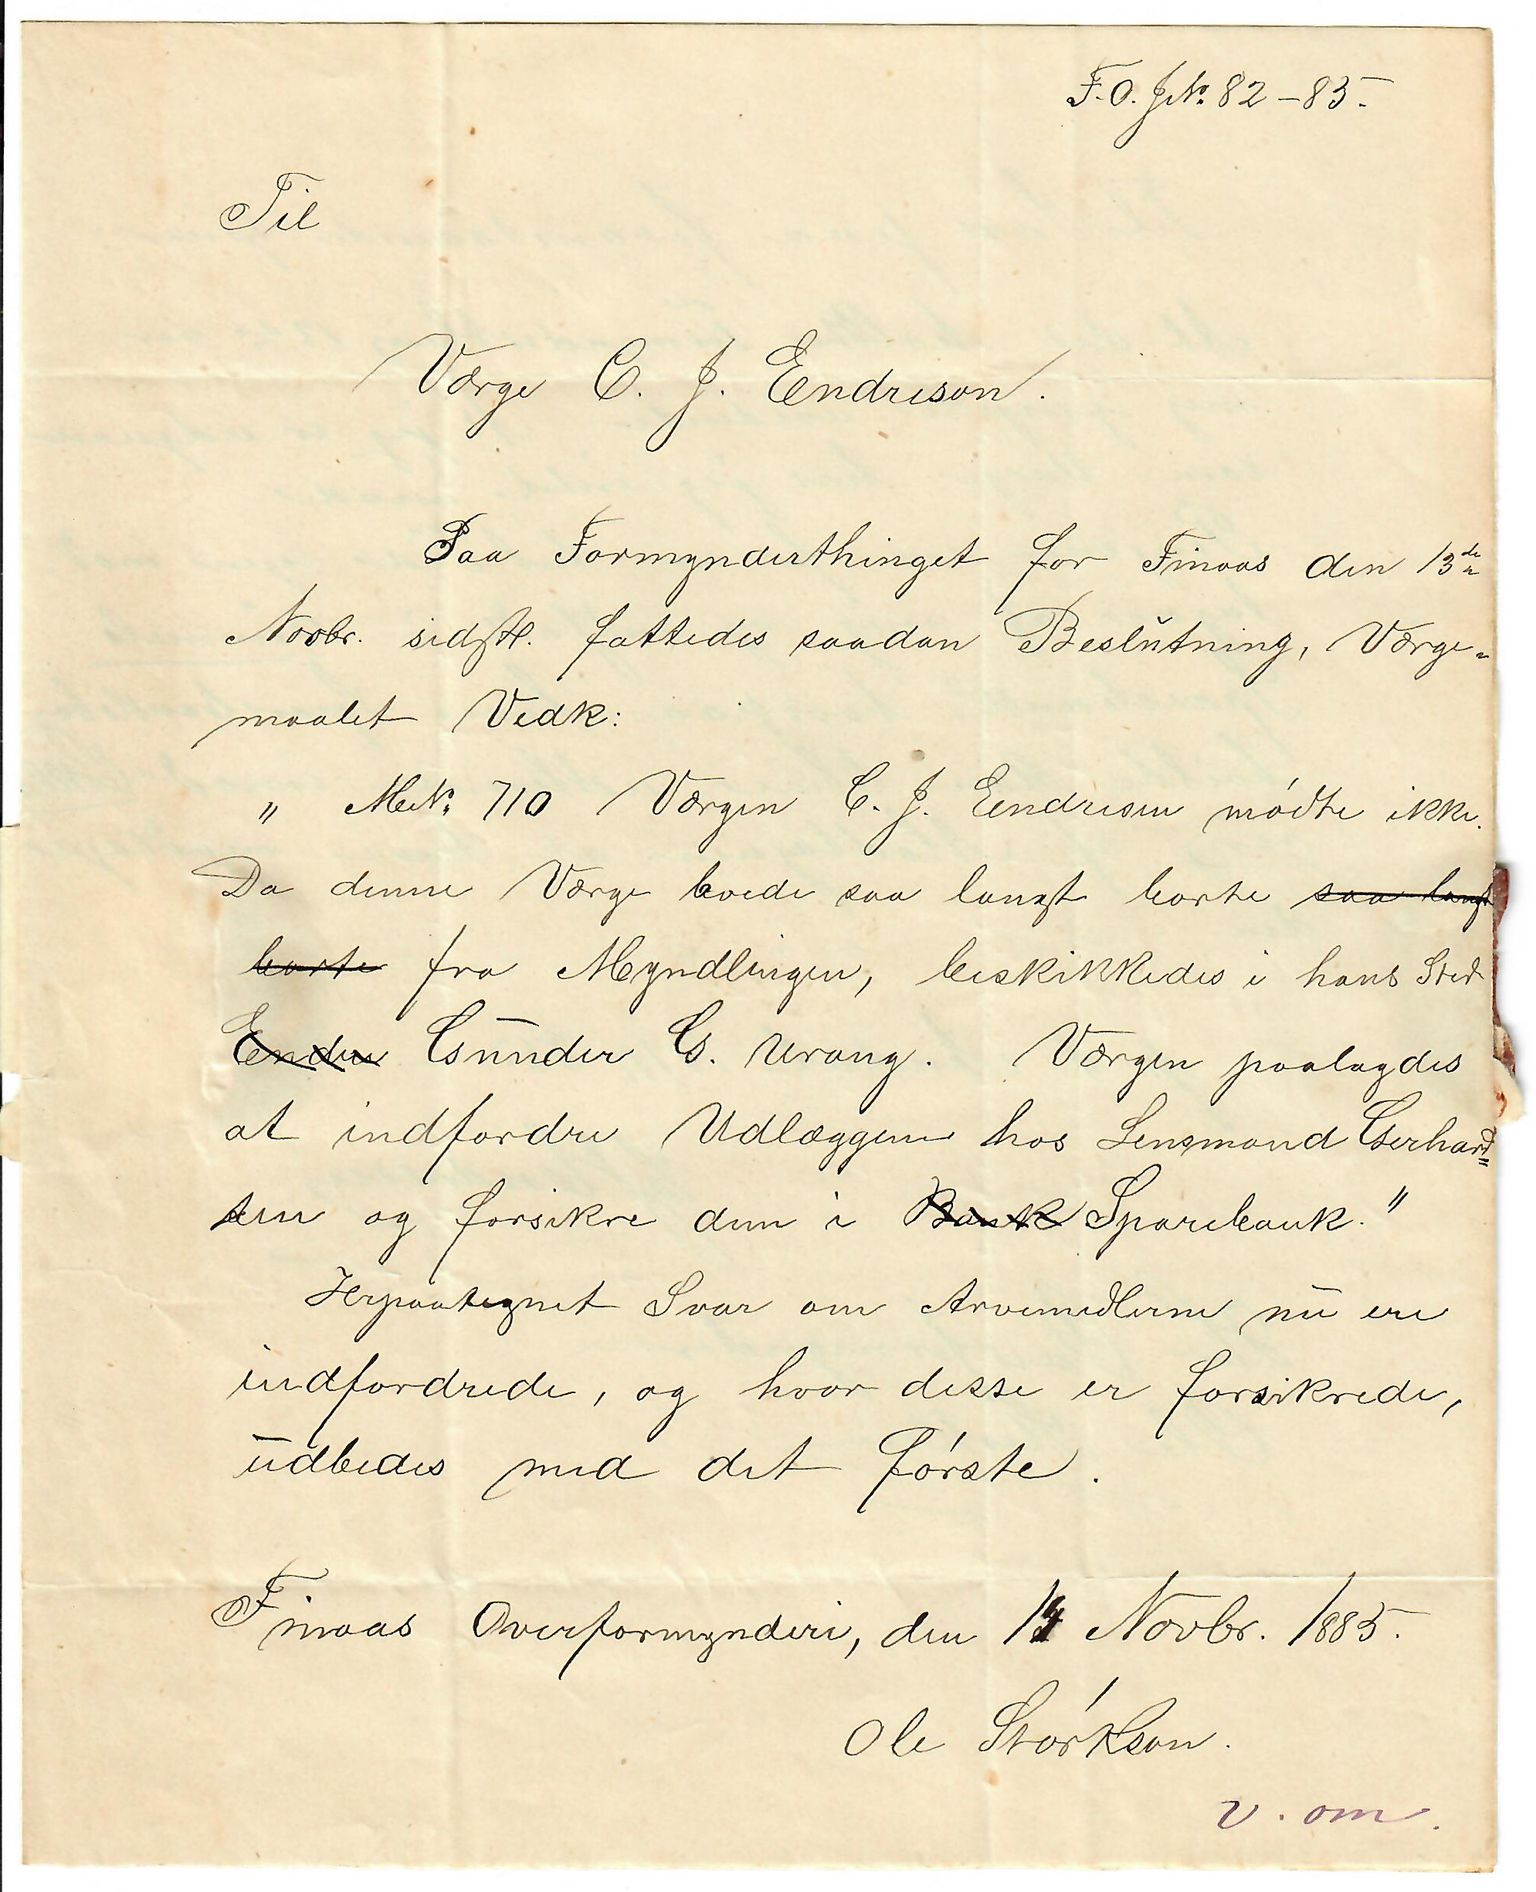 F.O. J№ 82-85.
Til
Værge C. J. Eendreson.
Paa Formynderthinget for Finaas den 13de
Novbr. sidstl. fattedes saadan Beslutning, Værge-
maalet Vedk:
" M№ 710 Værgen C. J. Eendresen mødte ikke.
Da denne Værge boede saa langt borte saa langt
borte fra Myndlingen, beskikkedes i hans Sted
Endre Gunder G. Urang. Værgen paalagdes
at indfordre Udlæggene hos Lensmand Gerhard=
sen og forsikre dem i Bank Sparebank."
Herpaategnet Svar om Arvemidlerne nu ere
indfordrede, og hvor disse er forsikrede,
udbedes med det første.
Finaas Overformynderi, den 14 Novbr. 1885.
Ole Størkson.
v. om.